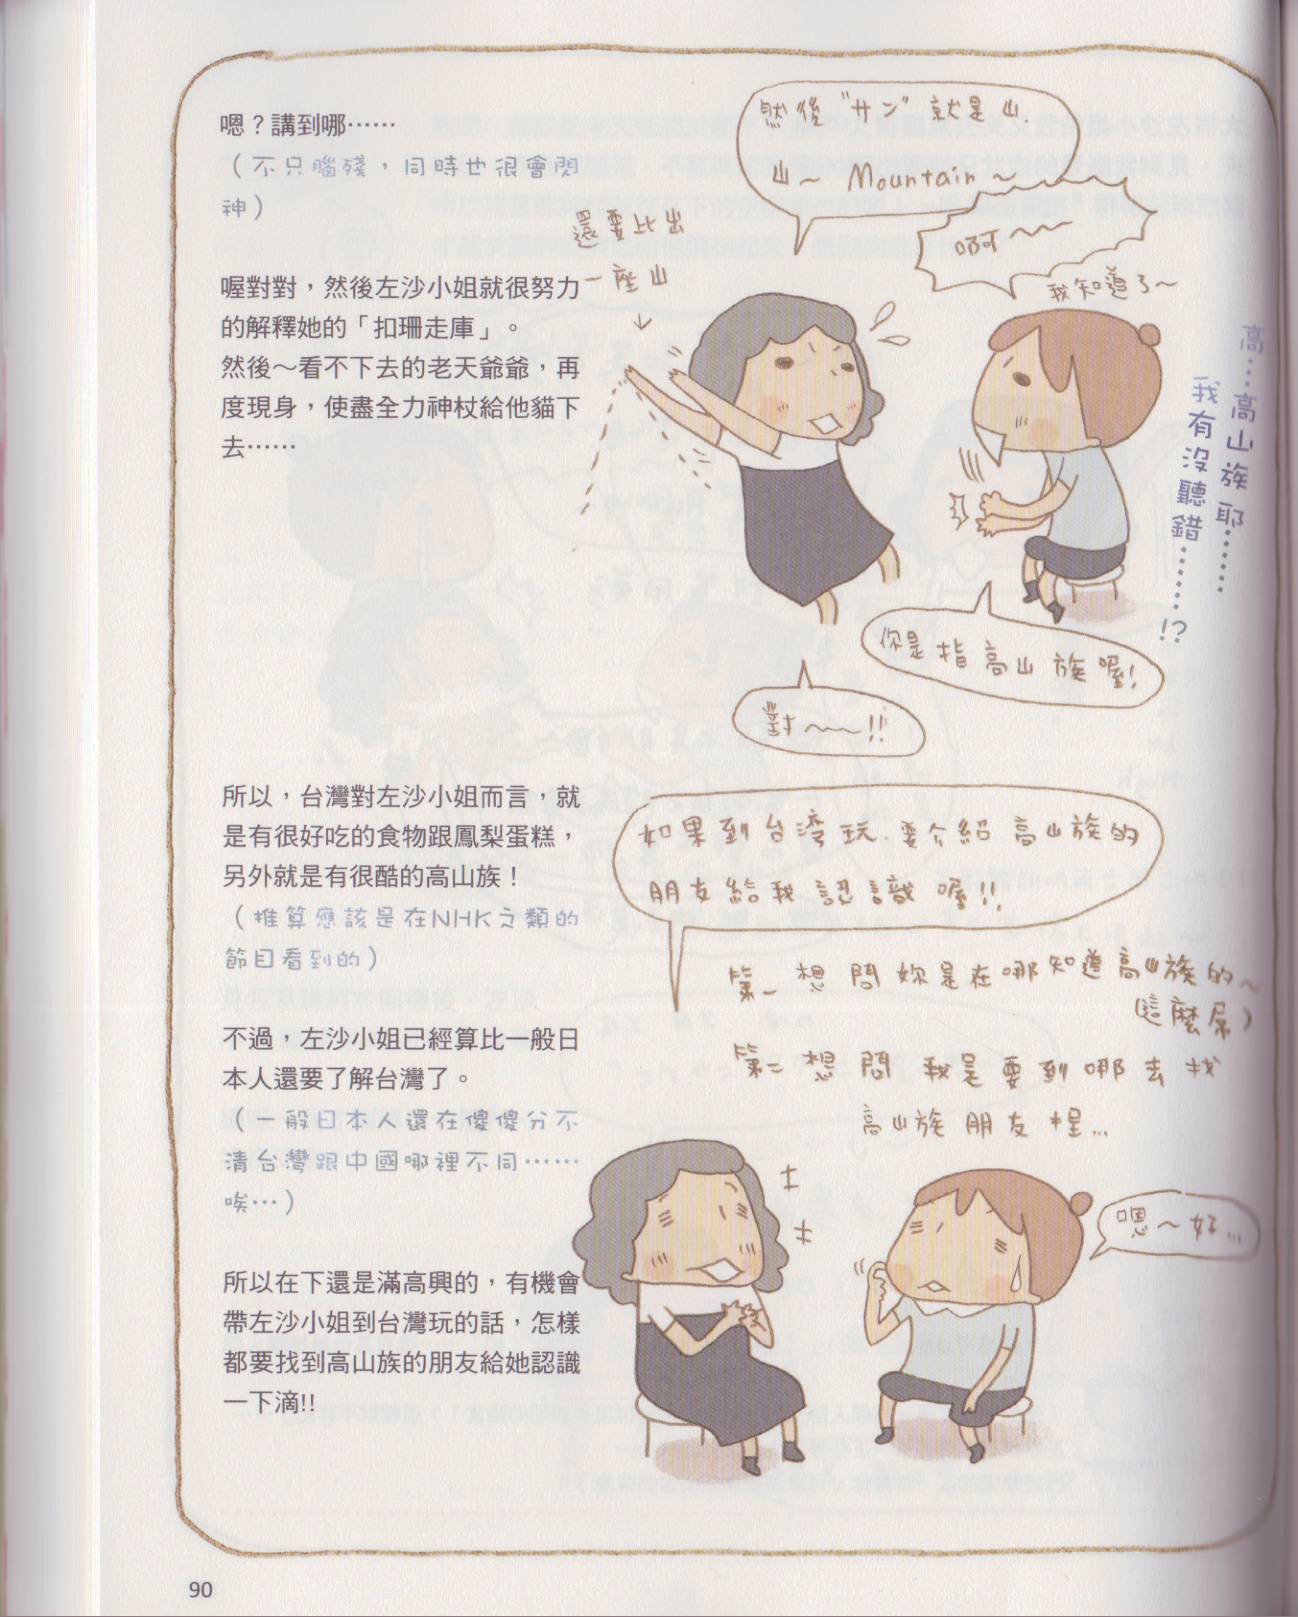 嗯？講到哪……
（不只腦殘，同時也很會閃
神）
喔對對，然後左沙小姐就很努力
的解釋她的「扣珊走庫」。
然後～看不下去的老天爺爺，再
度現身，使盡全力神杖給他貓下
去……
然後"サン"就是山.
山～ Mountain～
還要比出
一座山
啊～～
我知道了～
高…高山族耶……
我有沒聽錯……!?
你是指高山族喔!
對～～!!
所以，台灣對左沙小姐而言，就
是有很好吃的食物跟鳳梨蛋糕，
另外就是有很酷的高山族！
（推算應該是在NHK之類的
節目看到的）
不過，左沙小姐已經算比一般日
本人還要了解台灣了。
（一般日本人還在傻傻分不
清台灣跟中國哪裡不同……
唉…）
所以在下還是滿高興的，有機會
帶左沙小姐到台灣玩的話，怎樣
都要找到高山族的朋友給她認識
一下滴!!
如果到台灣玩.要介紹高山族的
朋友給我認識喔!!
第一想問妳是在哪知道高山族的～
這麼屌）
第二想問我是要到哪去找
高山族朋友哩…
嗯～好…
90